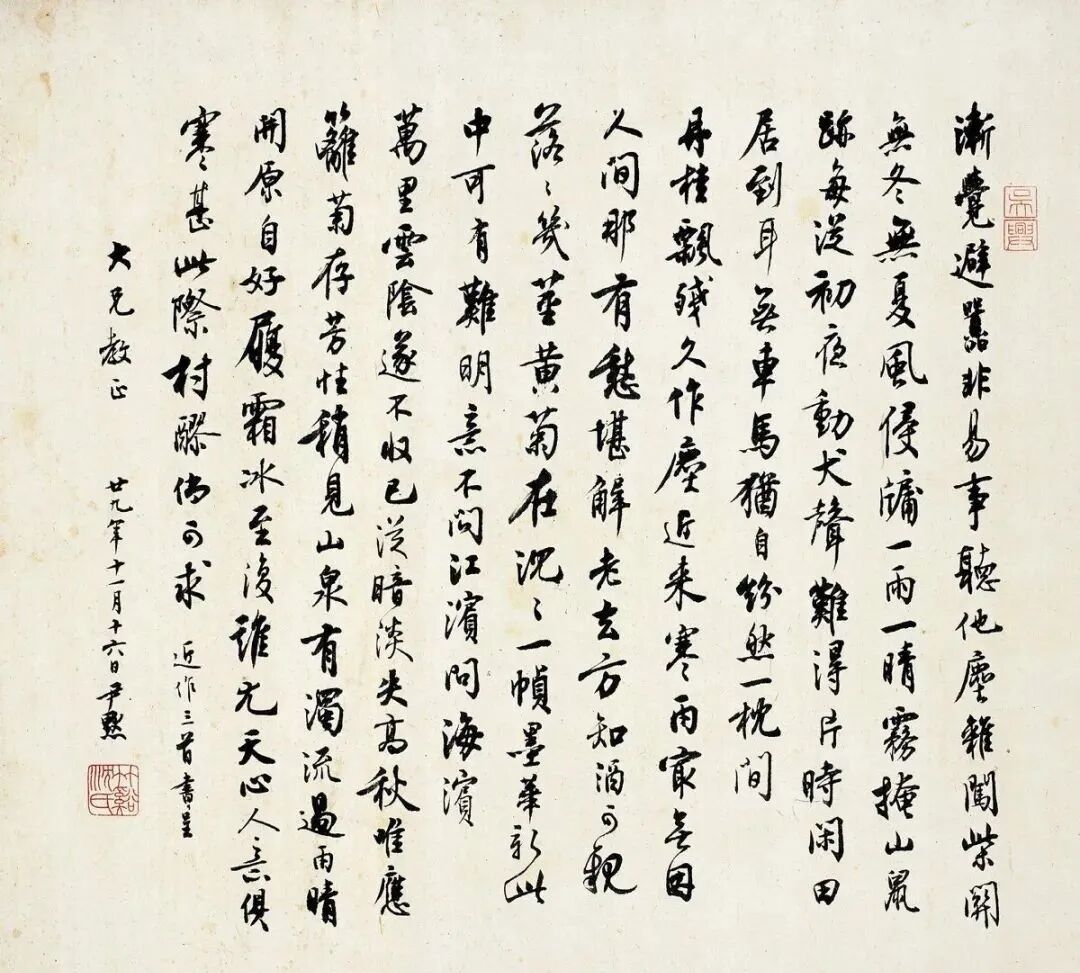 漸覺避囂非易事聽他塵雜闖柴關
無冬無夏風侵牖一雨一晴霧掩山鼠
跡每從初夜動犬聲難得片時閑田
居到耳無車馬猶自紛然一枕間
丹桂飄殘久作塵近來寒雨寂無因
人間那有愁堪解老去方知酒可親
落〻幾莖黃菊在沉〻一幀墨華新此
中可有難明意不問江濱問海濱
萬里雲陰遂不收已從暗淡失高秋唯應
籬菊存芳性稍見山泉有濁流過雨晴
開原自好履霜冰至復誰尤天心人意俱
寒甚此際村醪倘可求 近作三首書呈
大兄教正 廿九年十一月十六日尹默
吳興
竹谿沈氏